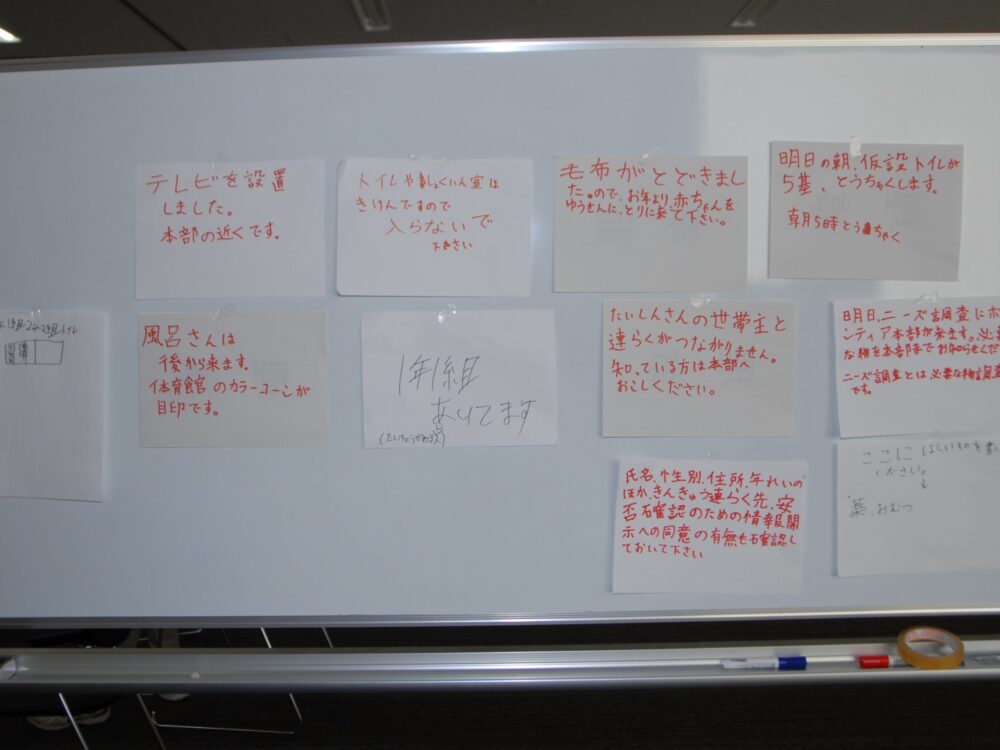 テレビを設置
しました。
本部の近くです。
トイレやしょくいん室は
きけんですので
入らないで
下さい
毛布がとどきまし
た。ので、お年より、赤ちゃんを
ゆうせんに、とりに来て下さい。
明日の朝、仮設トイレが
5基、とうちゃくします。
朝5時とうちゃく
風呂さんは
後から来ます。
体育館のカラーコーンが
目印です。
1年1組
あいてます
たいしんさんの世帯主と
連らくがつながりません。
知っている方は本部へ
おこしください。
明日、ニーズ調査にボ
ンティア本部が来ます。必要
な物を本部までお知らせくだ
ニーズ調査とは必要な物調査
です。
氏名、性別、住所、年れいの
ほか、きんきゅう連らく先、安
否確認のための情報開
示への同意の有無も確認し
ておいて下さい
ここにほしいものを書
ください。
薬、おむつ